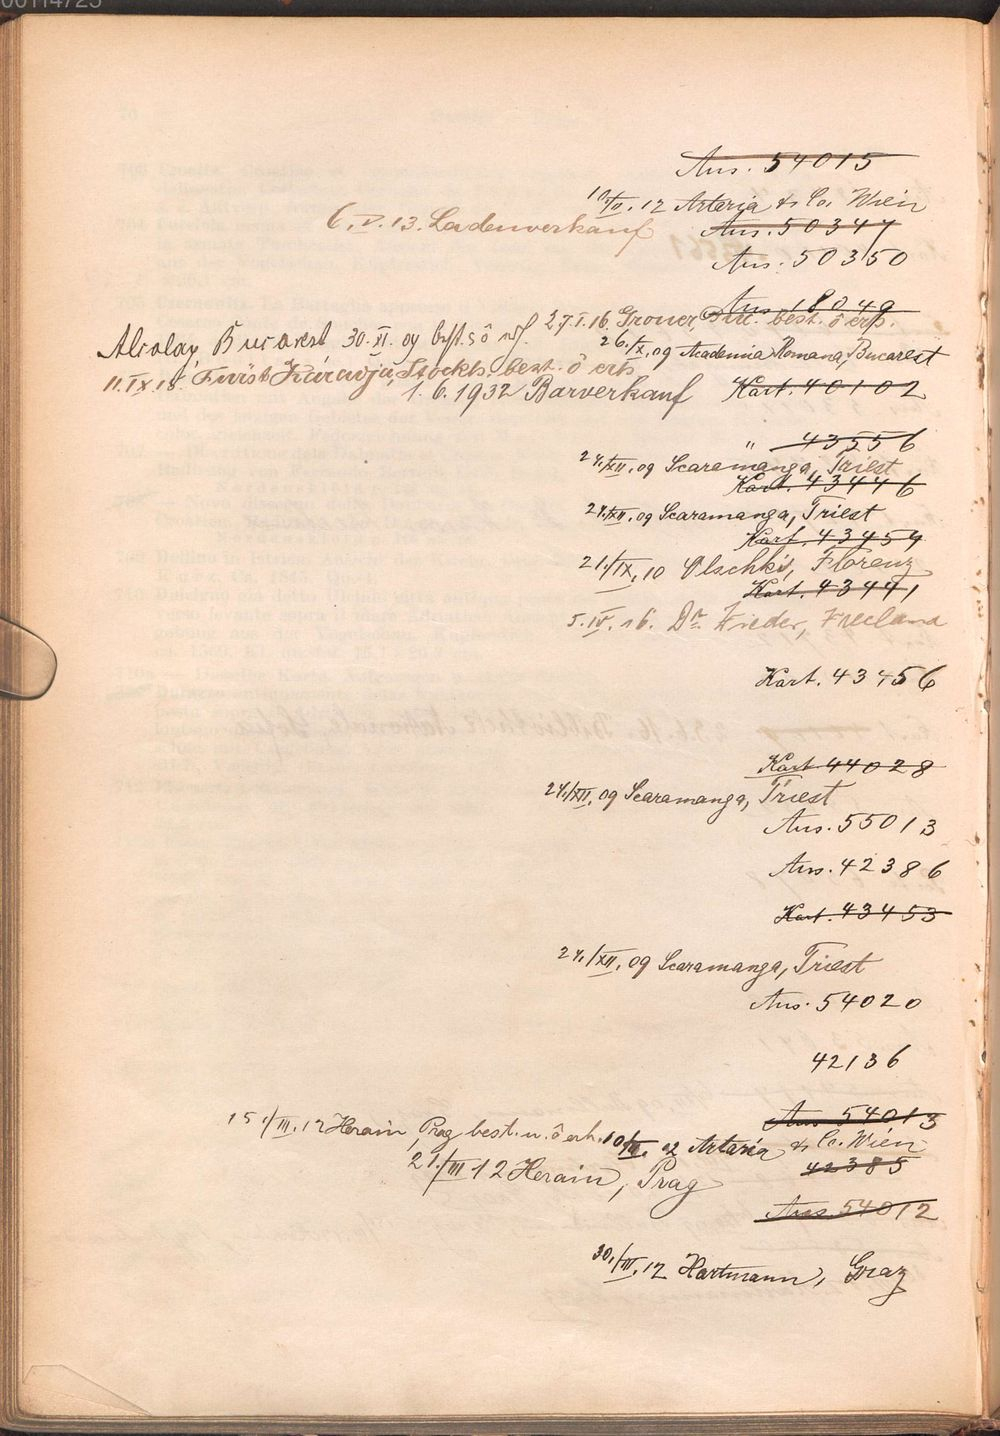 Ans. 54015
10/III. 12 Artaria & Co. Wien
6. V. 13. Ladenverkauf Ans. 50347
Ans. 50350
Ans. 18049
27. I. 16. Groner, best. ö erh.
Alcalay, Bucarest 30. XI. 09 best. s ö
26./X. 09 Academia Romana, Bucarest
11. IX 18. Fürst Karadja, Stockh. best. ö erh.
1. 6. 1932 Barverkauf Kart. 40102
" 43556
24./XII. 09 Scaramanga, Triest
Kart. 43446
24./XII. 09 Scaramanga, Triest
Kart. 43454
21./IX. 10 Olschki, Florenz
Kart. 43441
5. IV. 16. Dr. Wieder,
Kart. 43456
Kart. 44028
24./XII. 09 Scaramanga, Triest
Ans. 55013
Ans. 42386
Kart. 43453
24./XII. 09 Scaramanga, Triest
Ans. 54020
42136
Ans. 54013
15./III. 12 Herain, Prag best. u. ö erh. 10/III. 12 Artaria & Co. Wien
42385
21./III 12 Herain, Prag
Ans. 54012
30./III. 12 Hartmann, Graz